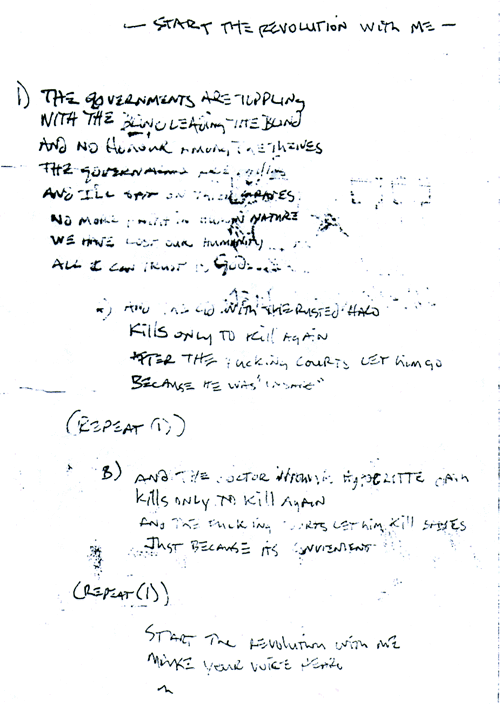 — START THE REVOLUTION WITH ME —
1) THE GOVERNMENTS ARE TOPPLING
WITH THE BLIND LEADING THE BLIND
AND NO HUMOUR AMONG THE THEIVES
THE GOVERNMENTS ARE
AND I'LL SPIT ON THEIR GRAVES
NO MORE IN HUMAN NATURE
WE HAVE LOST OUR HUMANITY
ALL I CAN TRUST IS GOD...
AND THE WITH THE RUSTED HALO
KILLS ONLY TO KILL AGAIN
AFTER THE FUCKING COURTS LET HIM GO
BECAUSE HE WAS "INSANE"
(REPEAT (1))
B) AND THE DOCTOR HYPOCRITTE
KILLS ONLY TO KILL AGAIN
AND THE FUCKING COURTS LET HIM KILL BABIES
JUST BECAUSE ITS CONVIENENT
(REPEAT (1))
START THE REVOLUTION WITH ME
MAKE YOUR VOICE HEARD